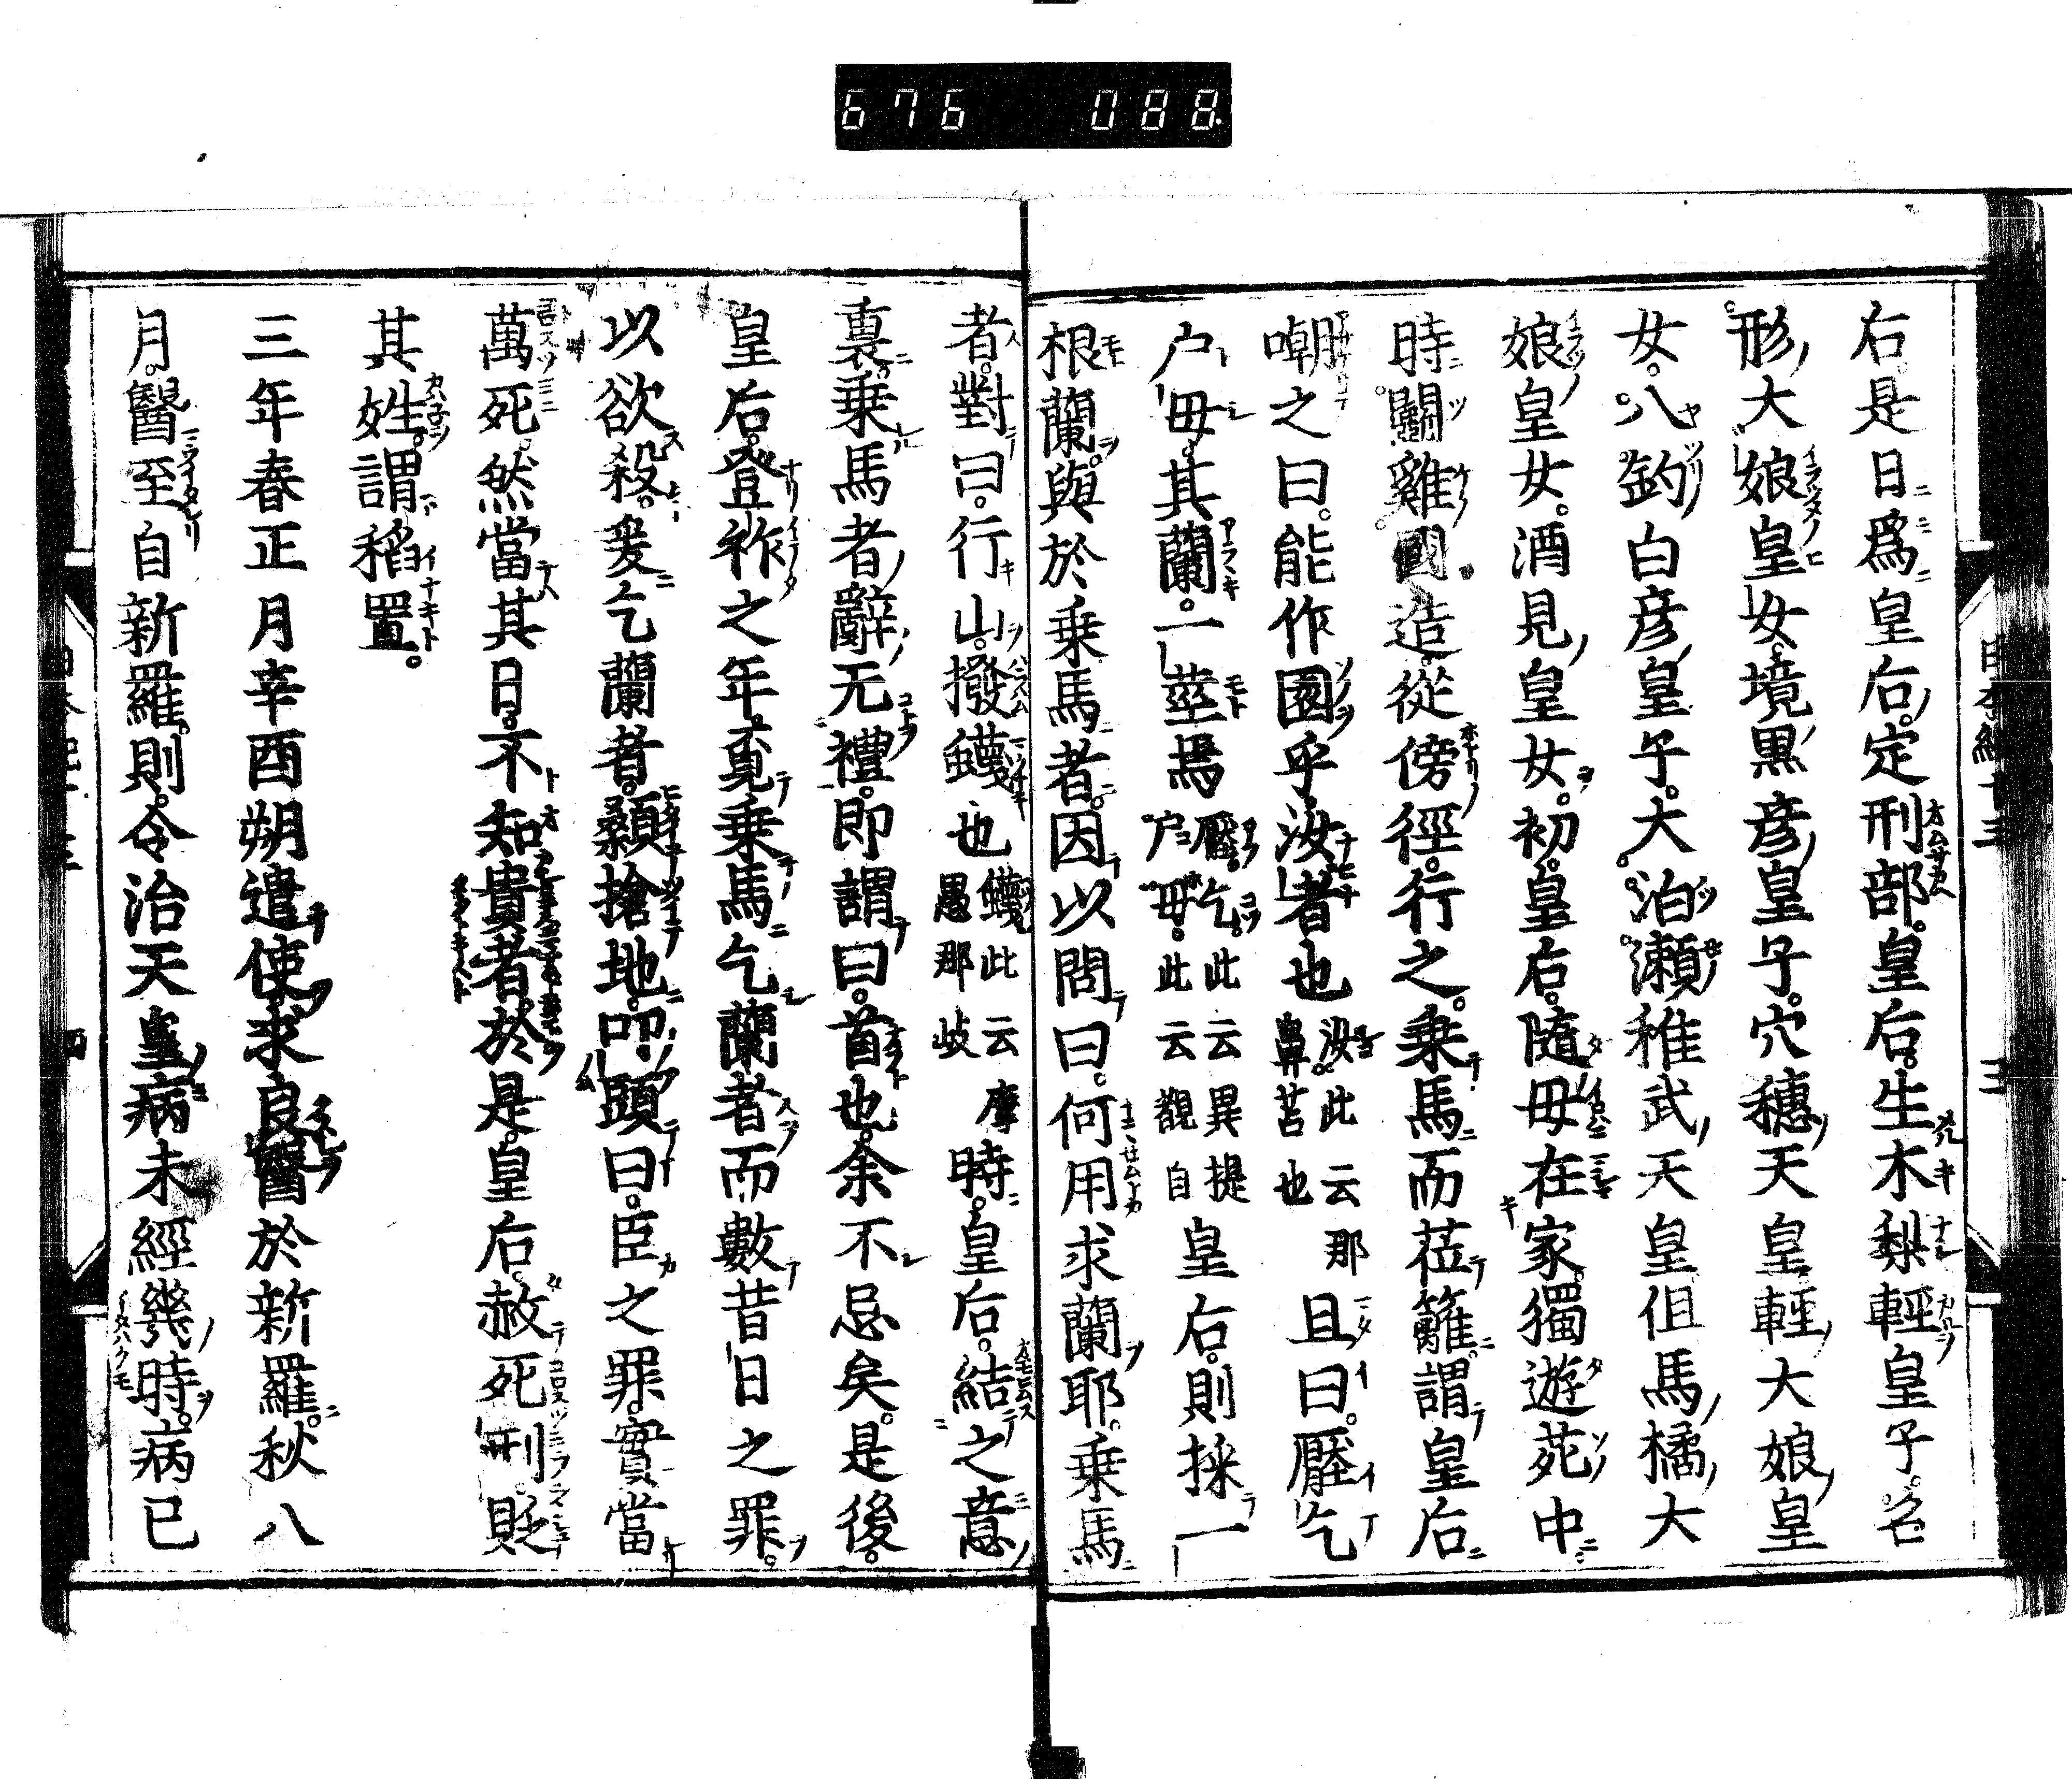 676 088
右是日爲皇后定刑部皇后生木梨輕皇子名
形大娘皇女境黒彦皇子穴穗天皇輕大娘皇
女八釣白彦皇子大泊瀬稚武天皇但馬橘大
娘皇女酒見皇女初皇后隨母在家獨遊苑中
時闘雞國造從傍徑行之乗馬而莅籬謂皇后
嘲之曰能作園乎汝者也汝此云那鼻苫也且曰壓乞
戸母其蘭一莖焉壓乞此云異提戸母此云覩自皇后則採一
根蘭與於乗馬者因以問曰何用求蘭耶乗馬
者對曰行山撥蠛也蠛此云摩愚那岐時皇后結之意
裏乗馬者辭无禮即謂曰首也余不忘矣是後
皇后登祚之年覔乗馬乞蘭者而數昔日之罪
以欲殺爰乞蘭者顙搶地叩頭曰臣之罪實當
萬死然當其日不知貴者於是皇后赦死刑貶
其姓謂稻置
三年春正月辛酉朔遣使求良醫於新羅秋八
月醫至自新羅則令治天皇病未經幾時病已